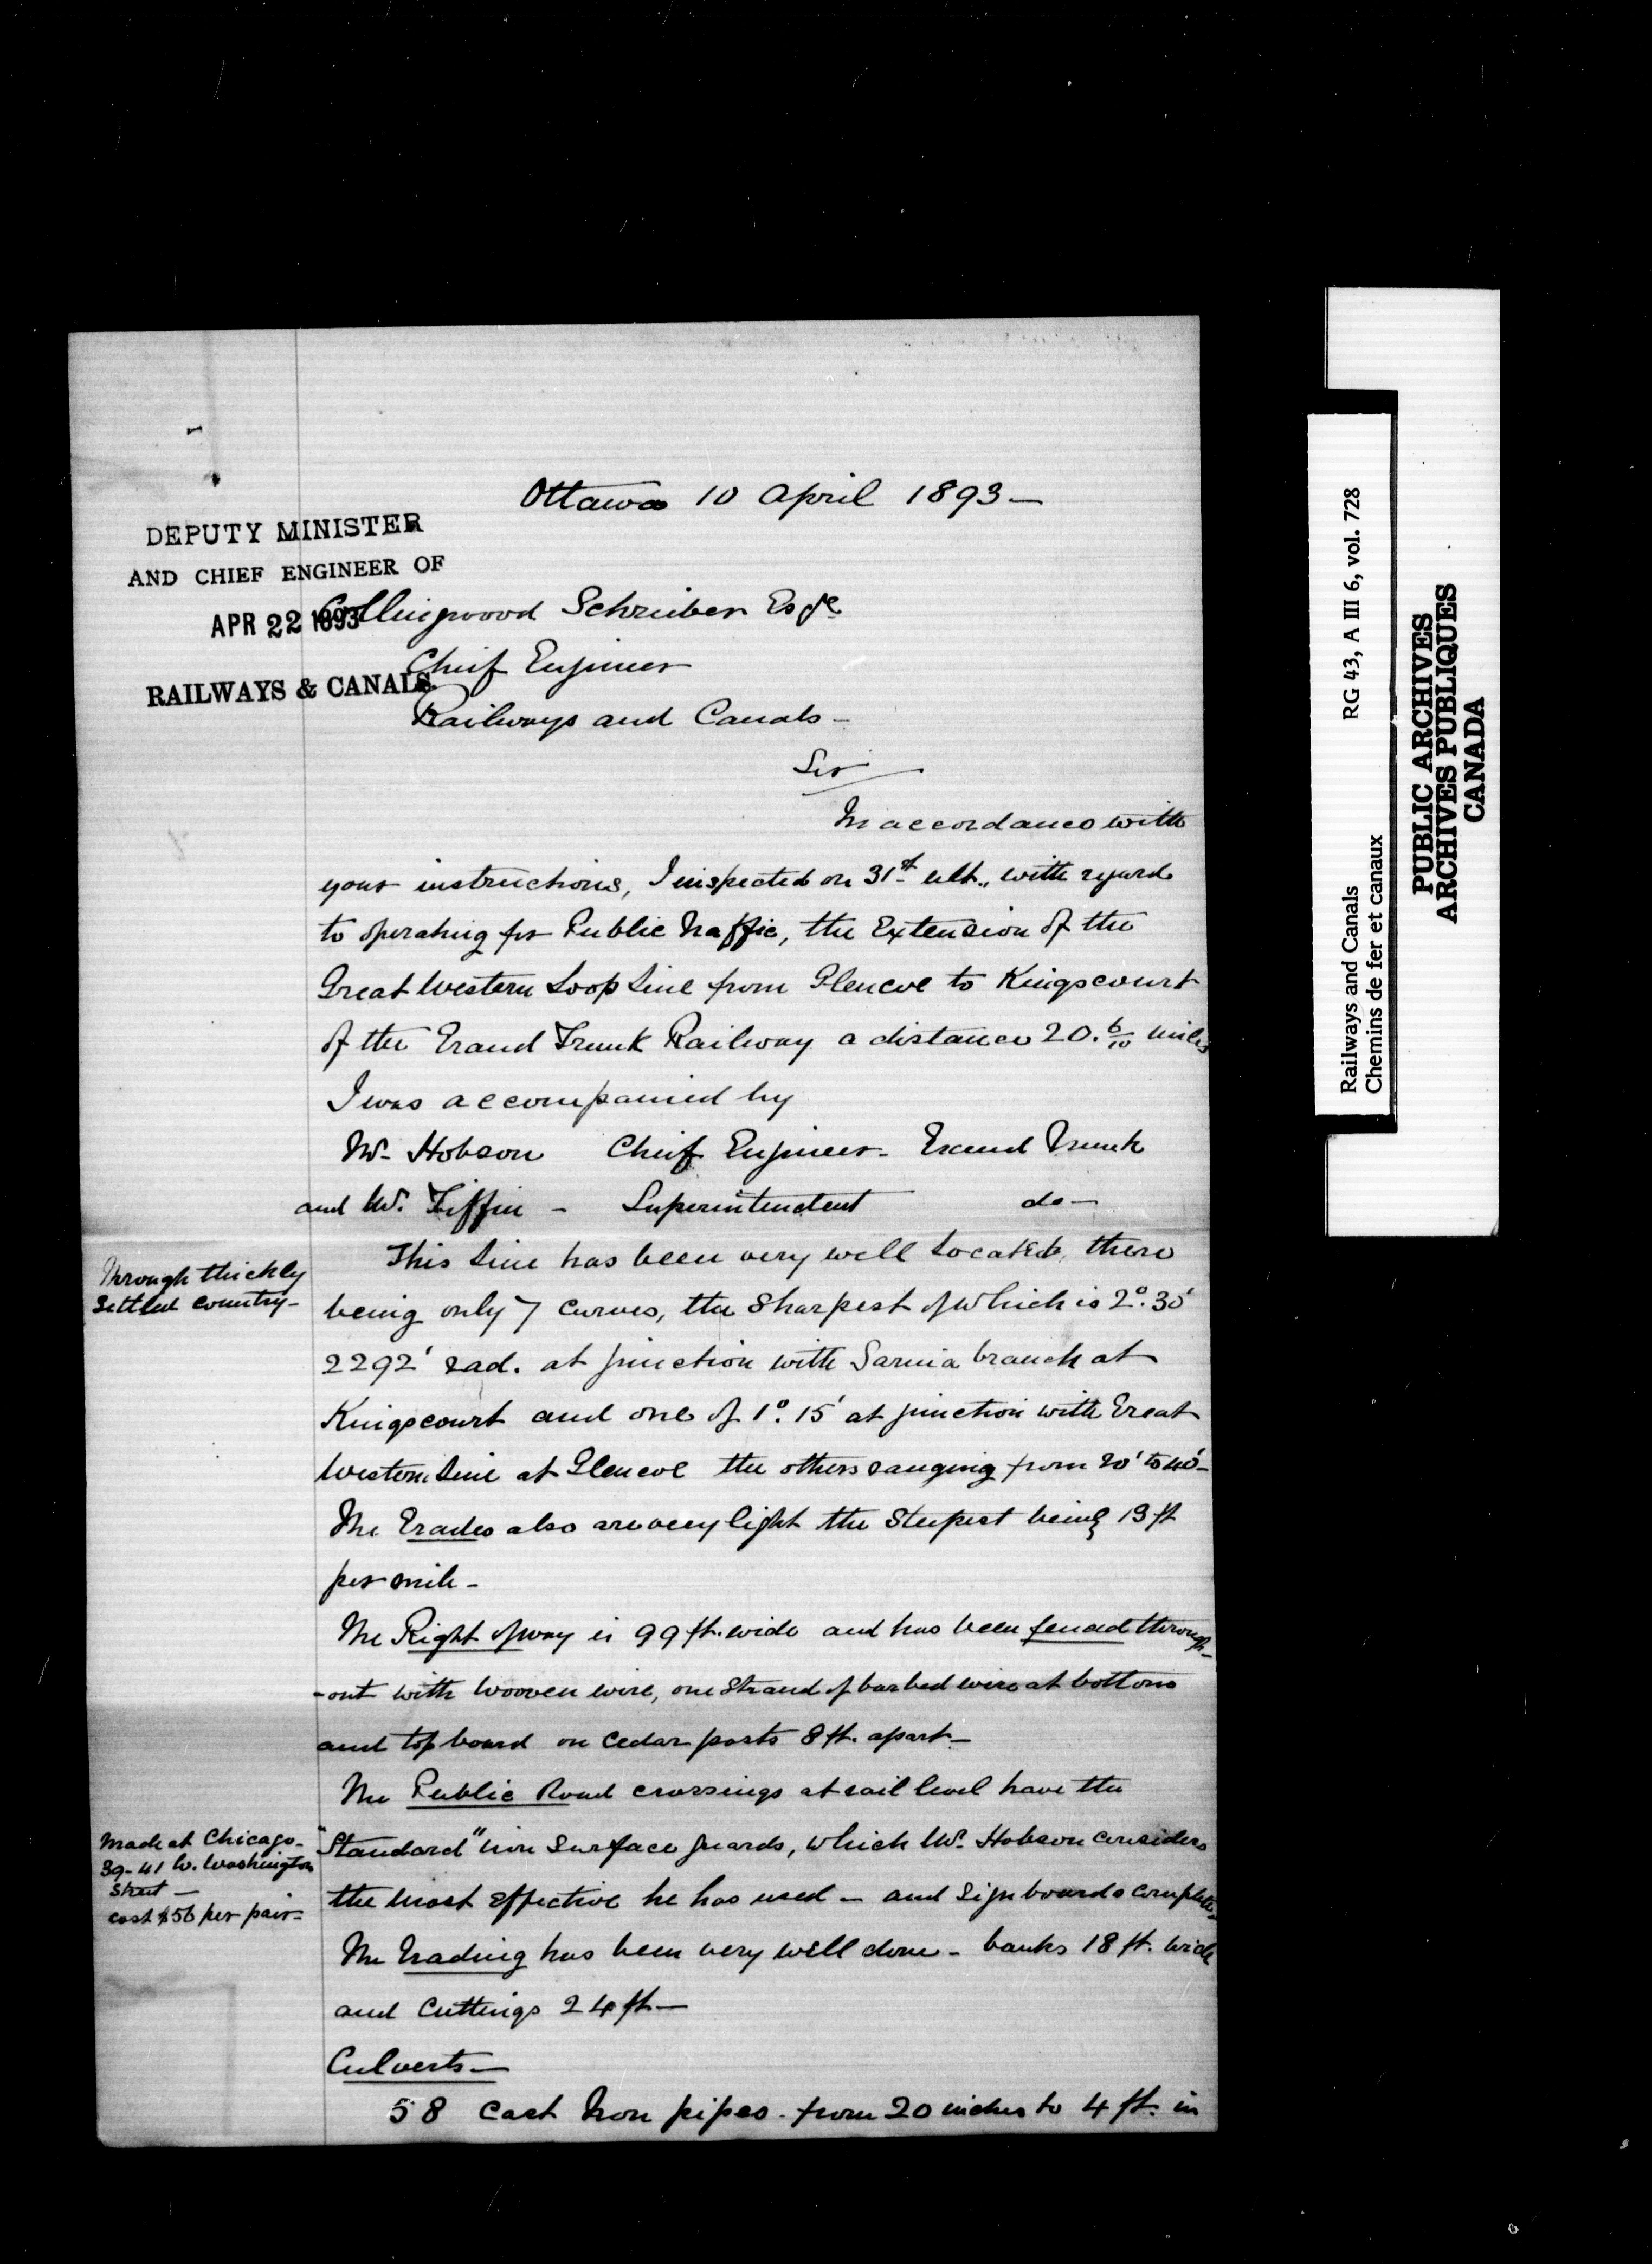 Ottawa 10 April 1893 —
DEPUTY MINISTER
AND CHIEF ENGINEER OF
APR 22 1893
RAILWAYS & CANALS.
Collingwood Schreiber Esqre
Chief Engineer
Railways and Canals —
Sir
In accordance with
your instructions, I inspected on 31st ult., with regard
to operating for Public Traffic, the Extension of the
Great Western Loop Line from Glencoe to Kingscourt
of the Grand Trunk Railway a distance 20. 6/10 miles
I was accompanied by
Mr. Hobson Chief Engineer - Grand Trunk
and Mr. Tiffin - Superintendent do —
Through thickly
settled country —
This Line has been very well located, there
being only 7 curves, the sharpest of which is 2°.30'
2292' rad. at junction with Sarnia branch at
Kingscourt and one of 1°.15' at junction with Great
Western Line at Glencoe the others ranging from 20' to 40' —
The Grades also are very light the steepest being 19 ft
per mile —
The Right of way is 99 ft. wide and has been fenced through-
-out with woven wire, one strand of barbed wire at bottom
and top board on cedar posts 8 ft. apart —
The Public Road crossings at rail level have the
Made at Chicago -
39-41 W. Washington
Street —
cost $56 per pair -
"Standard" iron surface guards, which Mr. Hobson considers
the most effective he has used — and sign boards complete -
The Grading has been very well done - banks 18 ft. wide
and cuttings 24 ft —
Culverts —
58 Cast Iron pipes - from 20 inches to 4 ft. in
Railways and Canals RG 43, A III 6, vol. 728
Chemins de fer et canaux
PUBLIC ARCHIVES
ARCHIVES PUBLIQUES
CANADA